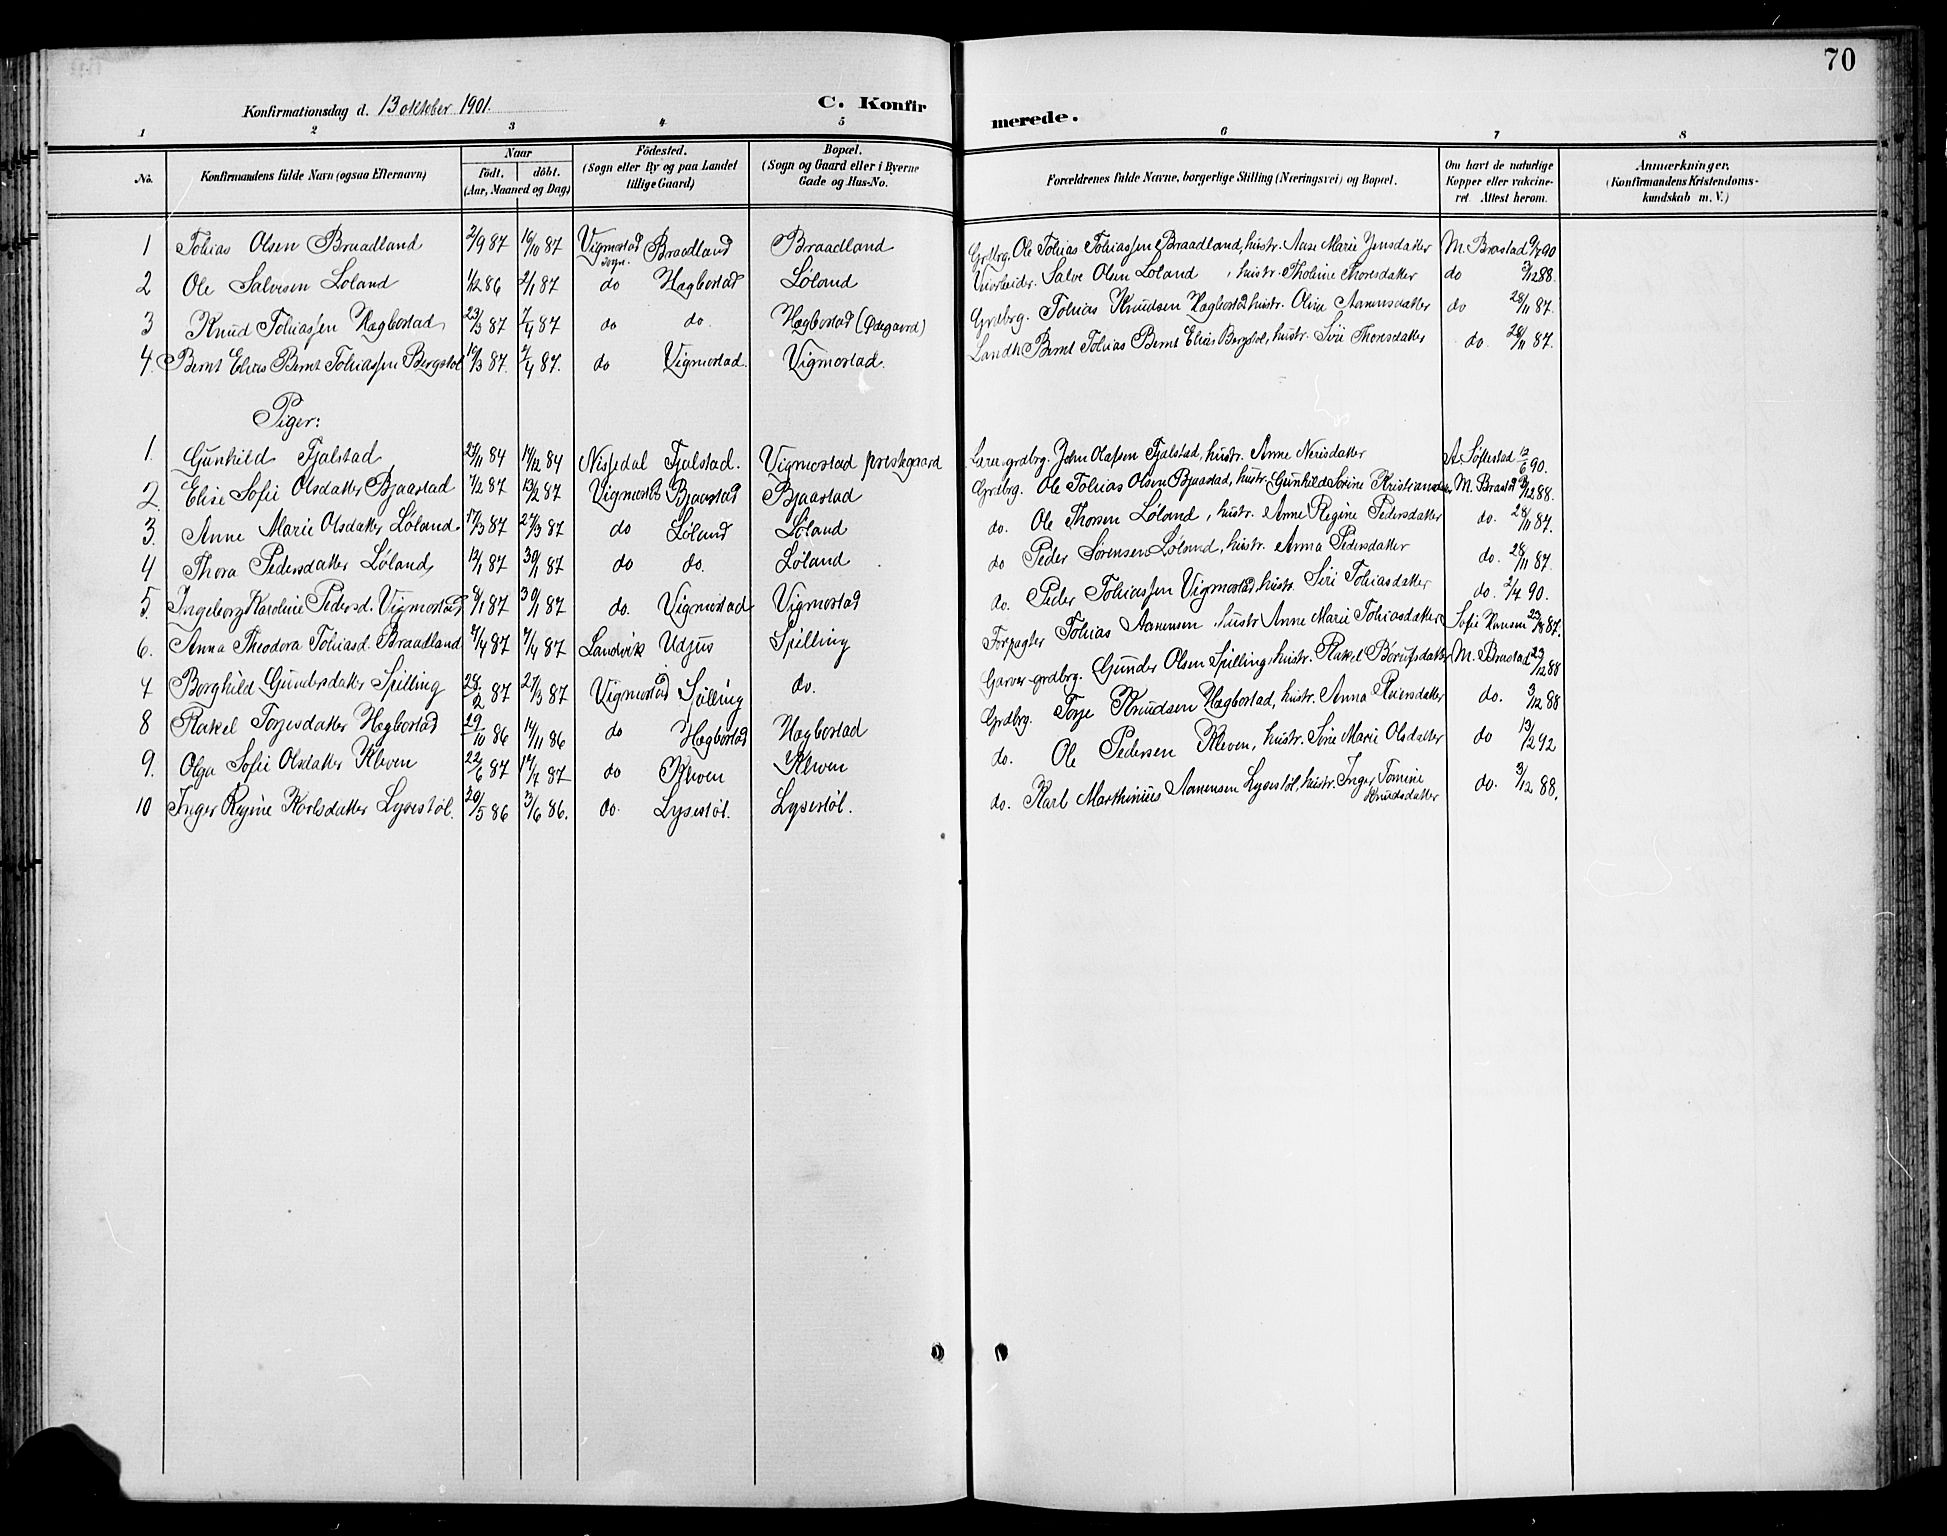 70
Konfirmationsdag d. 13 oktober 1901.
C. Konfirmerede.
1 2 3 4 5 6 7 8
No.
Konfirmandens fulde Navn (ogsaa Efternavn)
Naar
födt. döbt.
(Aar, Maaned og Dag)
Födested.
(Sogn eller By og paa Landet
tillige Gaard)
Bopæl.
(Sogn og Gaard eller i Byerne
Gade og Hus-No.
Forældrenes fulde Navne, borgerlige Stilling (Næringsvei) og Bopæl.
Om havt de naturlige
Kopper eller vakcine-
ret. Attest herom.
Anmærkninger,
(Konfirmandens Kristendoms-
kundskab m. V.)
1 Tobias Olsen Braadland 2/9 87 16/10 87 Vigmostad sogn. Braadland Braadland Grdbrg. Ole Tobias Tobiassen Braadland, hustr. Aase Marie Jensdatter M. Brastad 9/7 90
2 Ole Salvesen Løland 1/12 86 2/1 87 do Hægbostad Løland Salve Olsen Løland, hustr. Tholine Thorsdatter do 3/12 88.
3 Knud Tobiassen Hægbostad 23/3 87 7/4 87 do do. Hægbostad (Ødegaard) Grdbrg. Tobias Knudsen Hægbostad, hustr. Olive Aanensdatter do 28/11 87.
4. Bernt Elias Bernt Tobiassen Bergstøl 16/3 87. 7/4 87. do Vigmostad. Vigmostad. Landh. Bernt Tobias Bernt Elias Bergstøl, hustr. Siri Thorsdatter do. 28/11 87.
Piger:
1. Gunhild Fjalstad 27/11 84 14/12 84 Nissedal Fjalstad. Vigmostad prestegaard Lærer, grdbrg. John Olafsen Fjalstad, hustr. Anne Nerisdatter A Søftestad 12/6 90.
2. Elise Sofie Olsdatter Bjaastad 7/2 87 13/2 87 Vigmostad Bjaastad Bjaastad Grdbrg. Ole Tobias Olsen Bjaastad, hustr. Gunhild Sørine Kristiansdatter M. Brastad 3/12 88.
3. Anne Marie Olsdatter Løland. 17/3 87 27/3 87 do Løland Løland do. Ole Thorsen Løland, hustr. Anne Regine Pedersdatter do. 28/11 87.
4 Thora Pedersdatter Løland, 12/1 87 30/1 87 do do. Løland do Peder Sørensen Løland, hustr. Anna Pedersdatter do. 28/11 87.
5. Ingeborg Karoline Pedersd. Vigmostad 8/1 87 30/1 87 do. Vigmostad Vigmostad do. Peder Tobiassen Vigmostad, hustr. Siri Tobiasdatter do. 2/7 90.
6. Anna Theodora Tobiasd. Braadland 7/4 87 7/4 87 Landvik Udjus Spilling Forpagter Tobias Aanensen, hustr Anne Marie Tobiasdatter Sofie Hansen 23/9 87.
7 Borghild Gundersdatter Spilling 28/2 87 27/3 87 Vigmostad Spilling do. Garver grdbrg. Gunder Olsen Spilling, hustr. Rakel Børufsdatter M. Brastad 23/12 88
8 Rakel Torjesdatter Hægbostad 29/10 86 14/11 86 do Hægbostad Hægbostad Grdbrg. Torje Knudsen Hægbostad, hustr. Anna Reiersdatter do. 3/12 88
9. Olga Sofie Olsdatter Kleven 22/6 87 17/7 87 do Kleven Kleven do. Ole Pedersen Kleven, hustr. Sine Marie Olsdatter do 13/2 92
10 Inger Regine Karlsdatter Lysestøl. 20/5 86 3/6 86. do. Lysestøl. Lysestøl. do. Karl Marthinius Aanensen Lysestøl, hustr. Inger Tomine Knudsdatter do. 3/12 88.